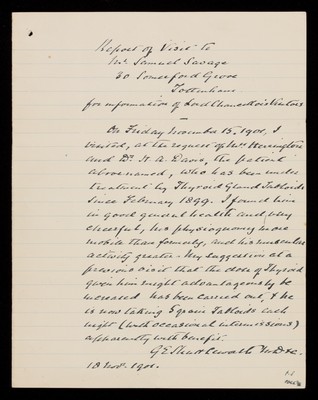 Report of Visit to
Mr. Samuel Savage
30 Somerford Grove
Tottenham
for information of Lord Chancellor's Visitors
On Friday November 15, 1901, I
visited, at the request of Mrs Herington
and Dr. H. A. Davis, the patient
abovenamed, who has been under
treatment by Thyroid Gland Tabloids
since February 1899. I found him
in good general health and very
cheerful, his physiognomy more
mobile than formerly, and his muscular
activity greater. My suggestion at a
previous visit that the dose of Thyroid
given him might advantageously be
increased has been carried out, & he
is now taking 5 grain Tabloids each
night (with occasional intermissions)
apparently with benefit.
G E Shuttleworth M.D. &c.
18 Novr. 1901.